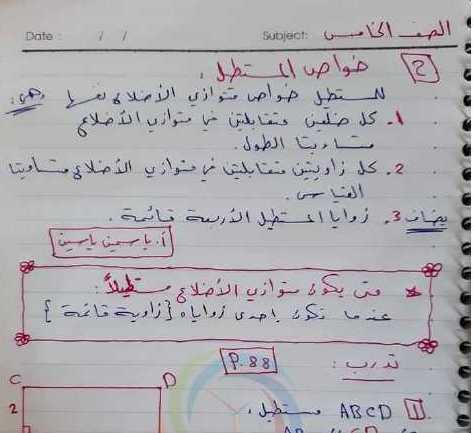 الصف الخامس
Date : / / Subject:
2 خواص المستطيل :
للمستطيل خواص متوازي الأضلاع نفسها وهي :
1. كل ضلعين متقابلتين في متوازي الأضلاع
متساويتا الطول.
2. كل زاويتين متقابلتين في متوازي الأضلاع متساويتا
القياس.
يضاف 3. زوايا المستطيل الأربعة قائمة.
أ. ياسمين ياسين
* متى يكون متوازي الأضلاع مستطيلاً :
عندما تكون إحدى زواياه {زاوية قائمة}
تدرب : P.88
1 ABCD مستطيل ،
C D
2